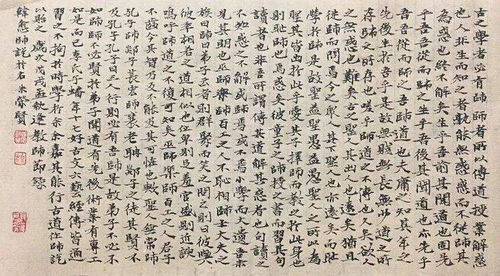 古之學者必有師師者所以傳道授業解惑
也人非生而知之者孰能無惑惑而不從師其
為惑也終不解矣生乎吾前其聞道也固先
乎吾吾從而師之生乎吾後其聞道也亦先乎
吾吾從而師之吾師道也夫庸知其年之
先後生於吾乎是故無貴無賤無長無少道之所
存師之所存也嗟乎師道之不傳也久矣欲人
之無惑也難矣古之聖人其出人也遠矣猶且
從師而問焉今之眾人其下聖人也亦遠矣而恥
學於師是故聖益聖愚益愚聖人之所以為
其皆出於此乎愛其子擇師而教之於其身也
則恥師焉惑矣彼童子之師授之書而習其句
讀者也非吾所謂傳其道解其惑者也句讀之
不知惑之不解或師焉或不焉小學而大遺吾未
見其明也巫醫樂師百工之人不恥相師士大夫之
族曰師曰弟子云者則群聚而笑之問之則曰彼與
彼年相若也道相似也位卑則足羞官盛則近諛
嗚呼師道之不復可知矣巫醫樂師百工之人君子
不齒今其智乃反不能及其可怪也歟聖人無常師
孔子師郯子萇弘師襄老聃郯子之徒其賢不
及孔子孔子曰三人行則必有吾師是故弟子不必
如師師不必賢於弟子聞道有先後術業有專工
如是而已李氏子蟠年十七好古文六藝經傳皆通
習之不拘於時學於余余嘉其能行古道作師說
以貽之歲次丙申孟秋逢教師節錄
韓愈師說於石米榮賢